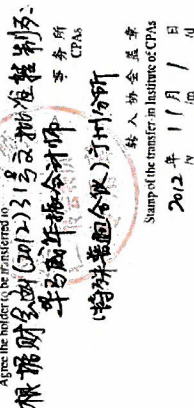 Agree the holder to be transferred to
根据财会函(2012)31号文批准转制为:
毕马威华振会计师
事务所
CPAs
(特殊普通合伙)广州分所
转入协会盖章
Stamp of the transfer-in Institute of CPAs
2012年 11月 1日